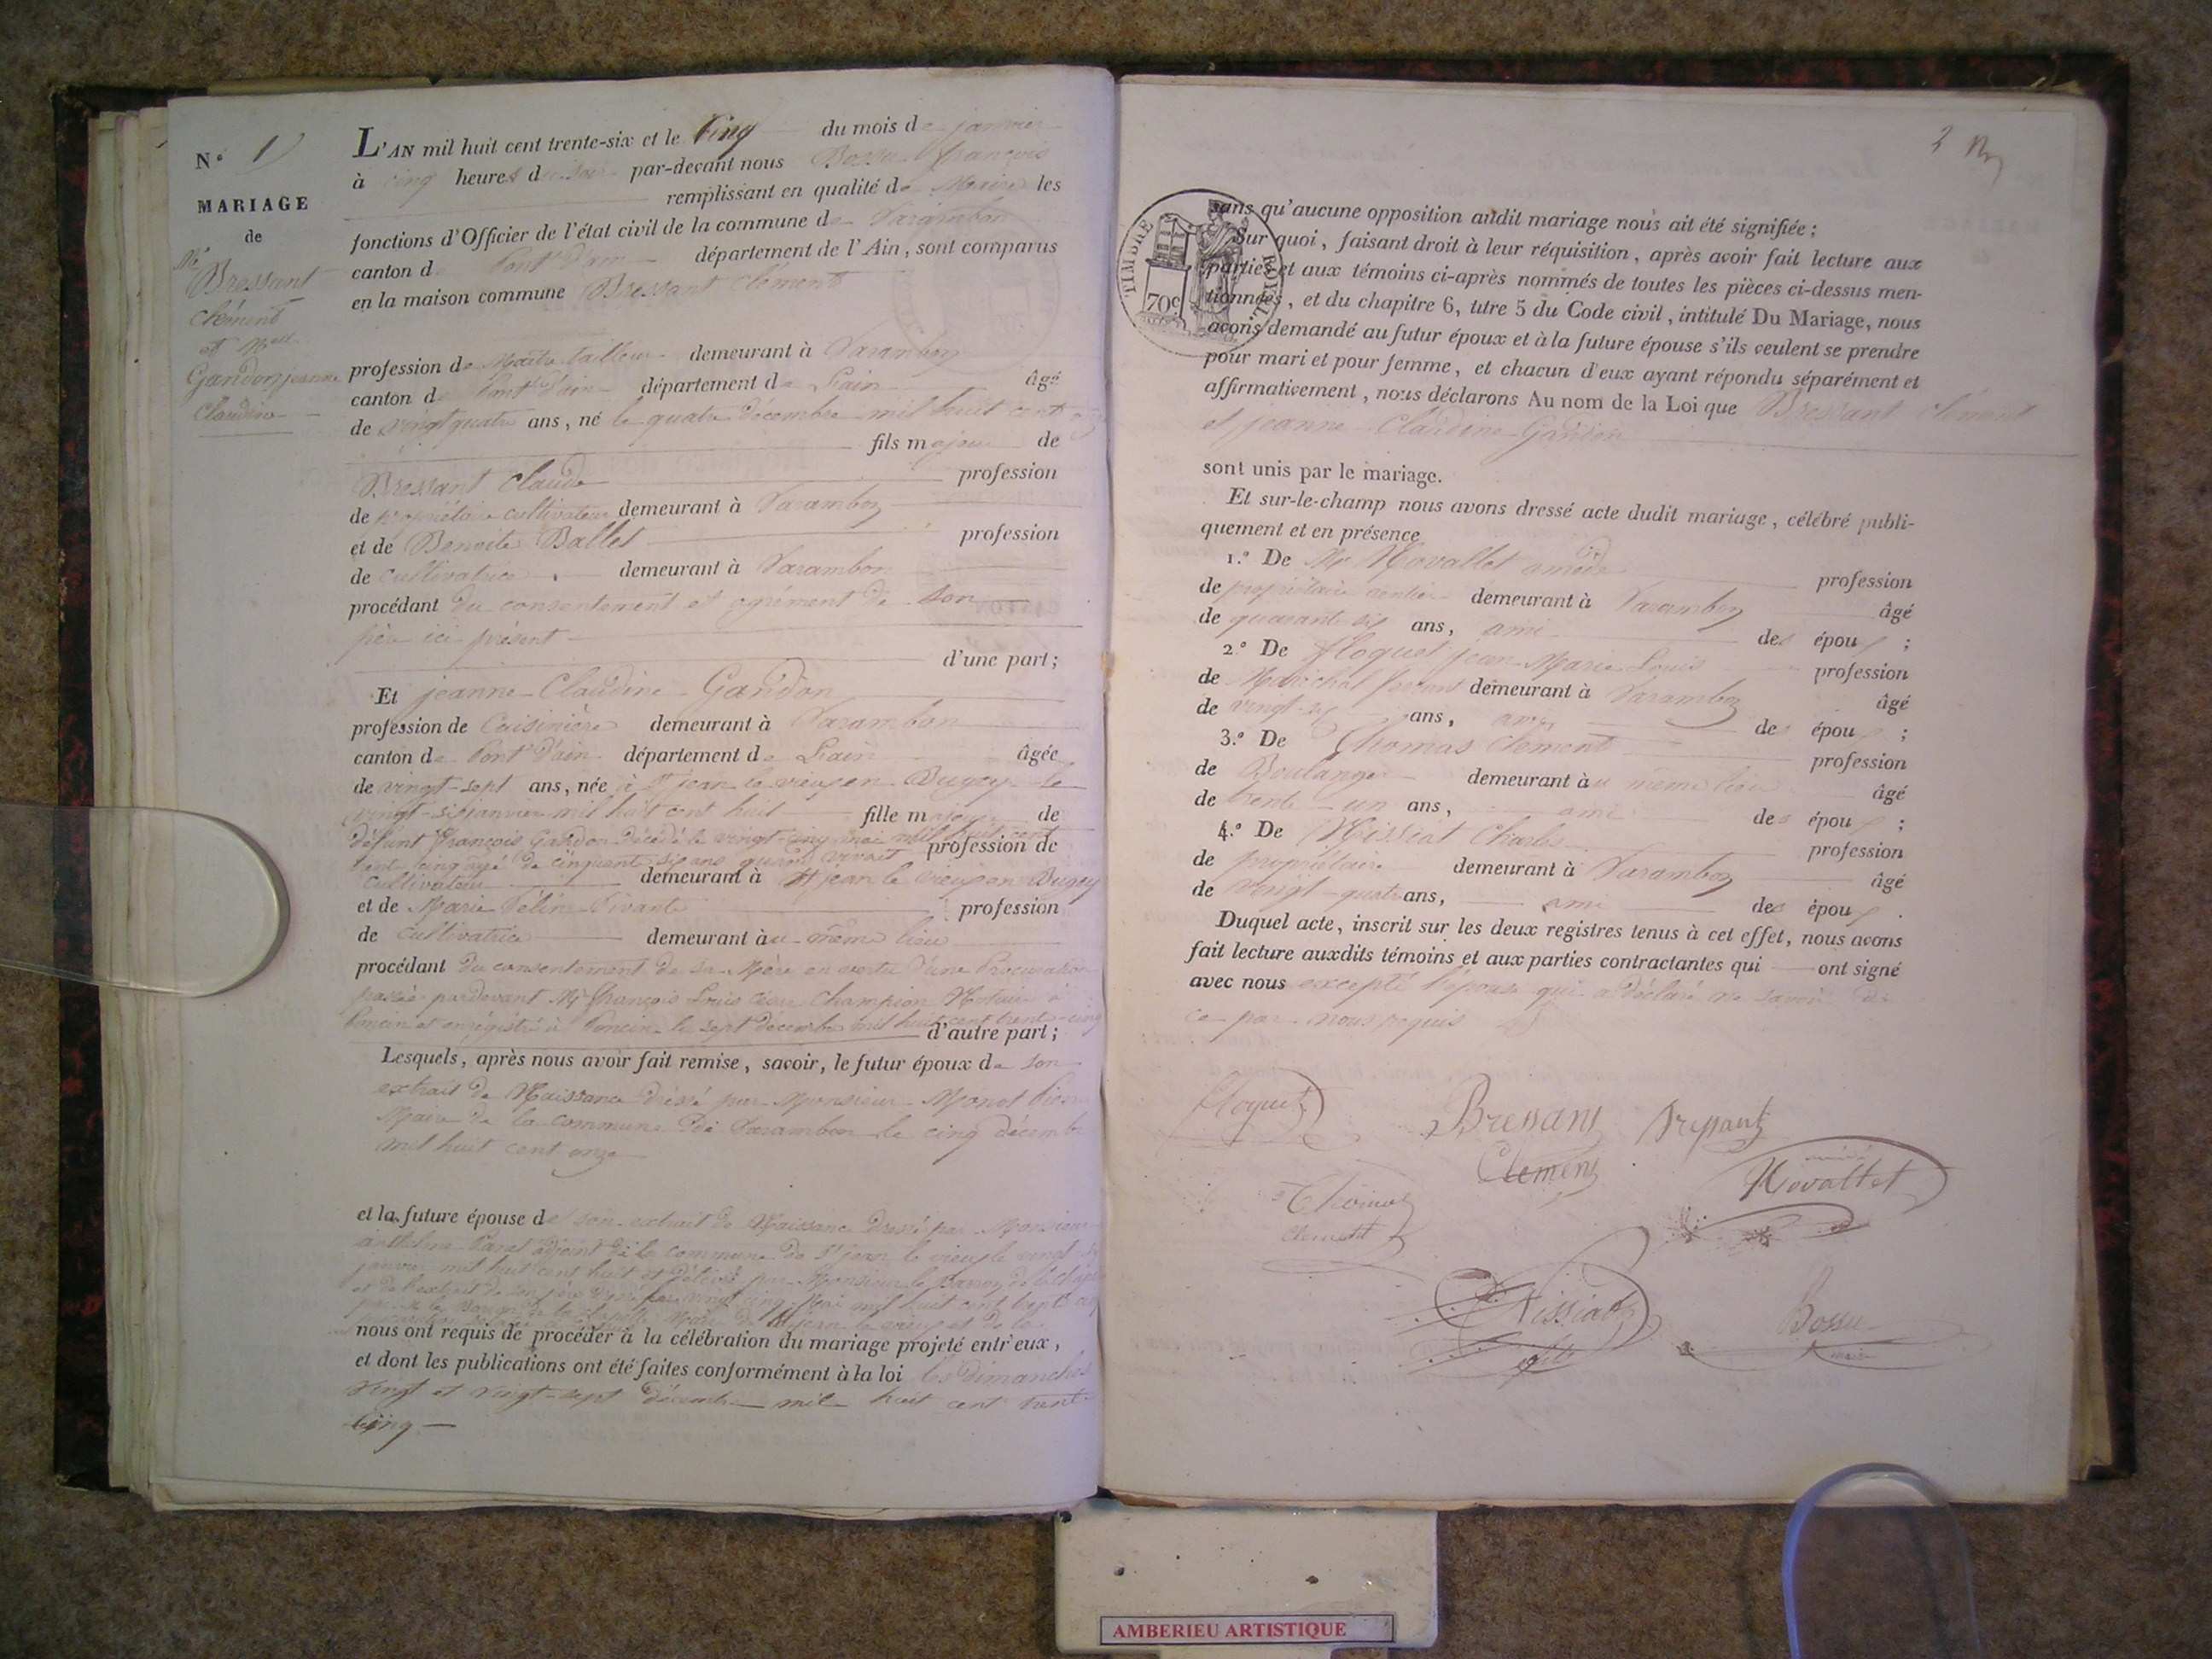 N.º 1
MARIAGE
de
Mr
Bressant
Clément
et Mell
Gandon jeanne
Claudine
L'AN mil huit cent trente-six et le Cinq du mois de janvier
à cinq heures du soir par-devant nous Bossu françois
remplissant en qualité de Maire les
fonctions d'Officier de l'état civil de la commune de Varambon
canton de Pont d'ain département de l'Ain, sont comparus
en la maison commune Bressant Clément
profession de Maitre tailleur demeurant à Varambon
canton de Pont d'ain département de L'ain âgé
de vingt quatre ans, né le quatre décembre mil huit cent onze
fils majeur de
Bressant Claude profession
de propriétaire cultivateur demeurant à Varambon
et de Benoite Ballet profession
de cultivatrice demeurant à Varambon
procédant du consentement et agrément de son
père ici présent
d'une part;
Et jeanne Claudine Gandon
profession de Cuisinière demeurant à Varambon
canton de Pont d'ain département de L'ain âgée
de vingt-sept ans, née à St jean le vieux en Bugey le
vingt-six janvier mil huit cent huit fille majeure de
défunt françois Gandon décédé le vingt-cinq mai mil huit cent
trente cinq agé de cinquante six ans quand vivait profession de
cultivateur demeurant à St jean le vieux en Bugey
et de Marie profession
de cultivatrice demeurant au même lieu
procédant du consentement de sa Mère en vertu d'une Procuration
passée pardevant Me françois Louis Champion Notaire à
Poncin et enregistré à Poncin le sept décembre mil huit cent trente-cinq
d'autre part;
Lesquels, après nous avoir fait remise, savoir, le futur époux de son
extrait de Naissance dressé par Monsieur Monot
Maire de la commune de Varambon le cinq décembre
mil huit cent onze
et la future épouse de son extrait de Naissance dressé par Monsieur
adjoint de la commune de St jean le vieux le vingt six
janvier mil huit cent huit et délivré par Monsieur le Baron de
et de l'extrait de son père vingt cinq Mai mil huit cent trente cinq
nous ont requis de procéder à la célébration du mariage projeté entr'eux,
et dont les publications ont été faites conformément à la loi les dimanches
vingt et vingt-sept décembre mil huit cent trente
cinq
2
TIMBRE ROYAL
70c
sans qu'aucune opposition audit mariage nous ait été signifiée;
Sur quoi, faisant droit à leur réquisition, après avoir fait lecture aux
parties et aux témoins ci-après nommés de toutes les pièces ci-dessus men-
tionnées, et du chapitre 6, titre 5 du Code civil, intitulé Du Mariage, nous
avons demandé au futur époux et à la future épouse s'ils veulent se prendre
pour mari et pour femme, et chacun d'eux ayant répondu séparément et
affirmativement, nous déclarons Au nom de la Loi que Bressant Clément
et jeanne Claudine Gandon
sont unis par le mariage.
Et sur-le-champ nous avons dressé acte dudit mariage, célébré publi-
quement et en présence
1.º De Mr Novallet amédé profession
de propriétaire rentier demeurant à Varambon âgé
de quarante six ans, ami des époux;
2.º De floquet jean Marie Louis profession
de Maréchal ferrant demeurant à Varambon âgé
de vingt-six ans, ami des époux;
3.º De Thomas Clément profession
de Boulanger demeurant au même lieu âgé
de trente-un ans, ami des époux;
4.º De Nissiat Charles profession
de propriétaire demeurant à Varambon âgé
de vingt-quatre ans, ami des époux.
Duquel acte, inscrit sur les deux registres tenus à cet effet, nous avons
fait lecture auxdits témoins et aux parties contractantes qui ont signé
avec nous excepté l'épouse qui a déclaré ne savoir de
ce par nous requis
floquet Bressant Bressant
Clement Novallet
Thomas
Clement
Nissiat Bossu
fils maire
AMBERIEU ARTISTIQUE